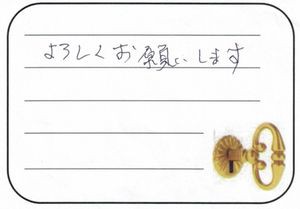 よろしくお願いします